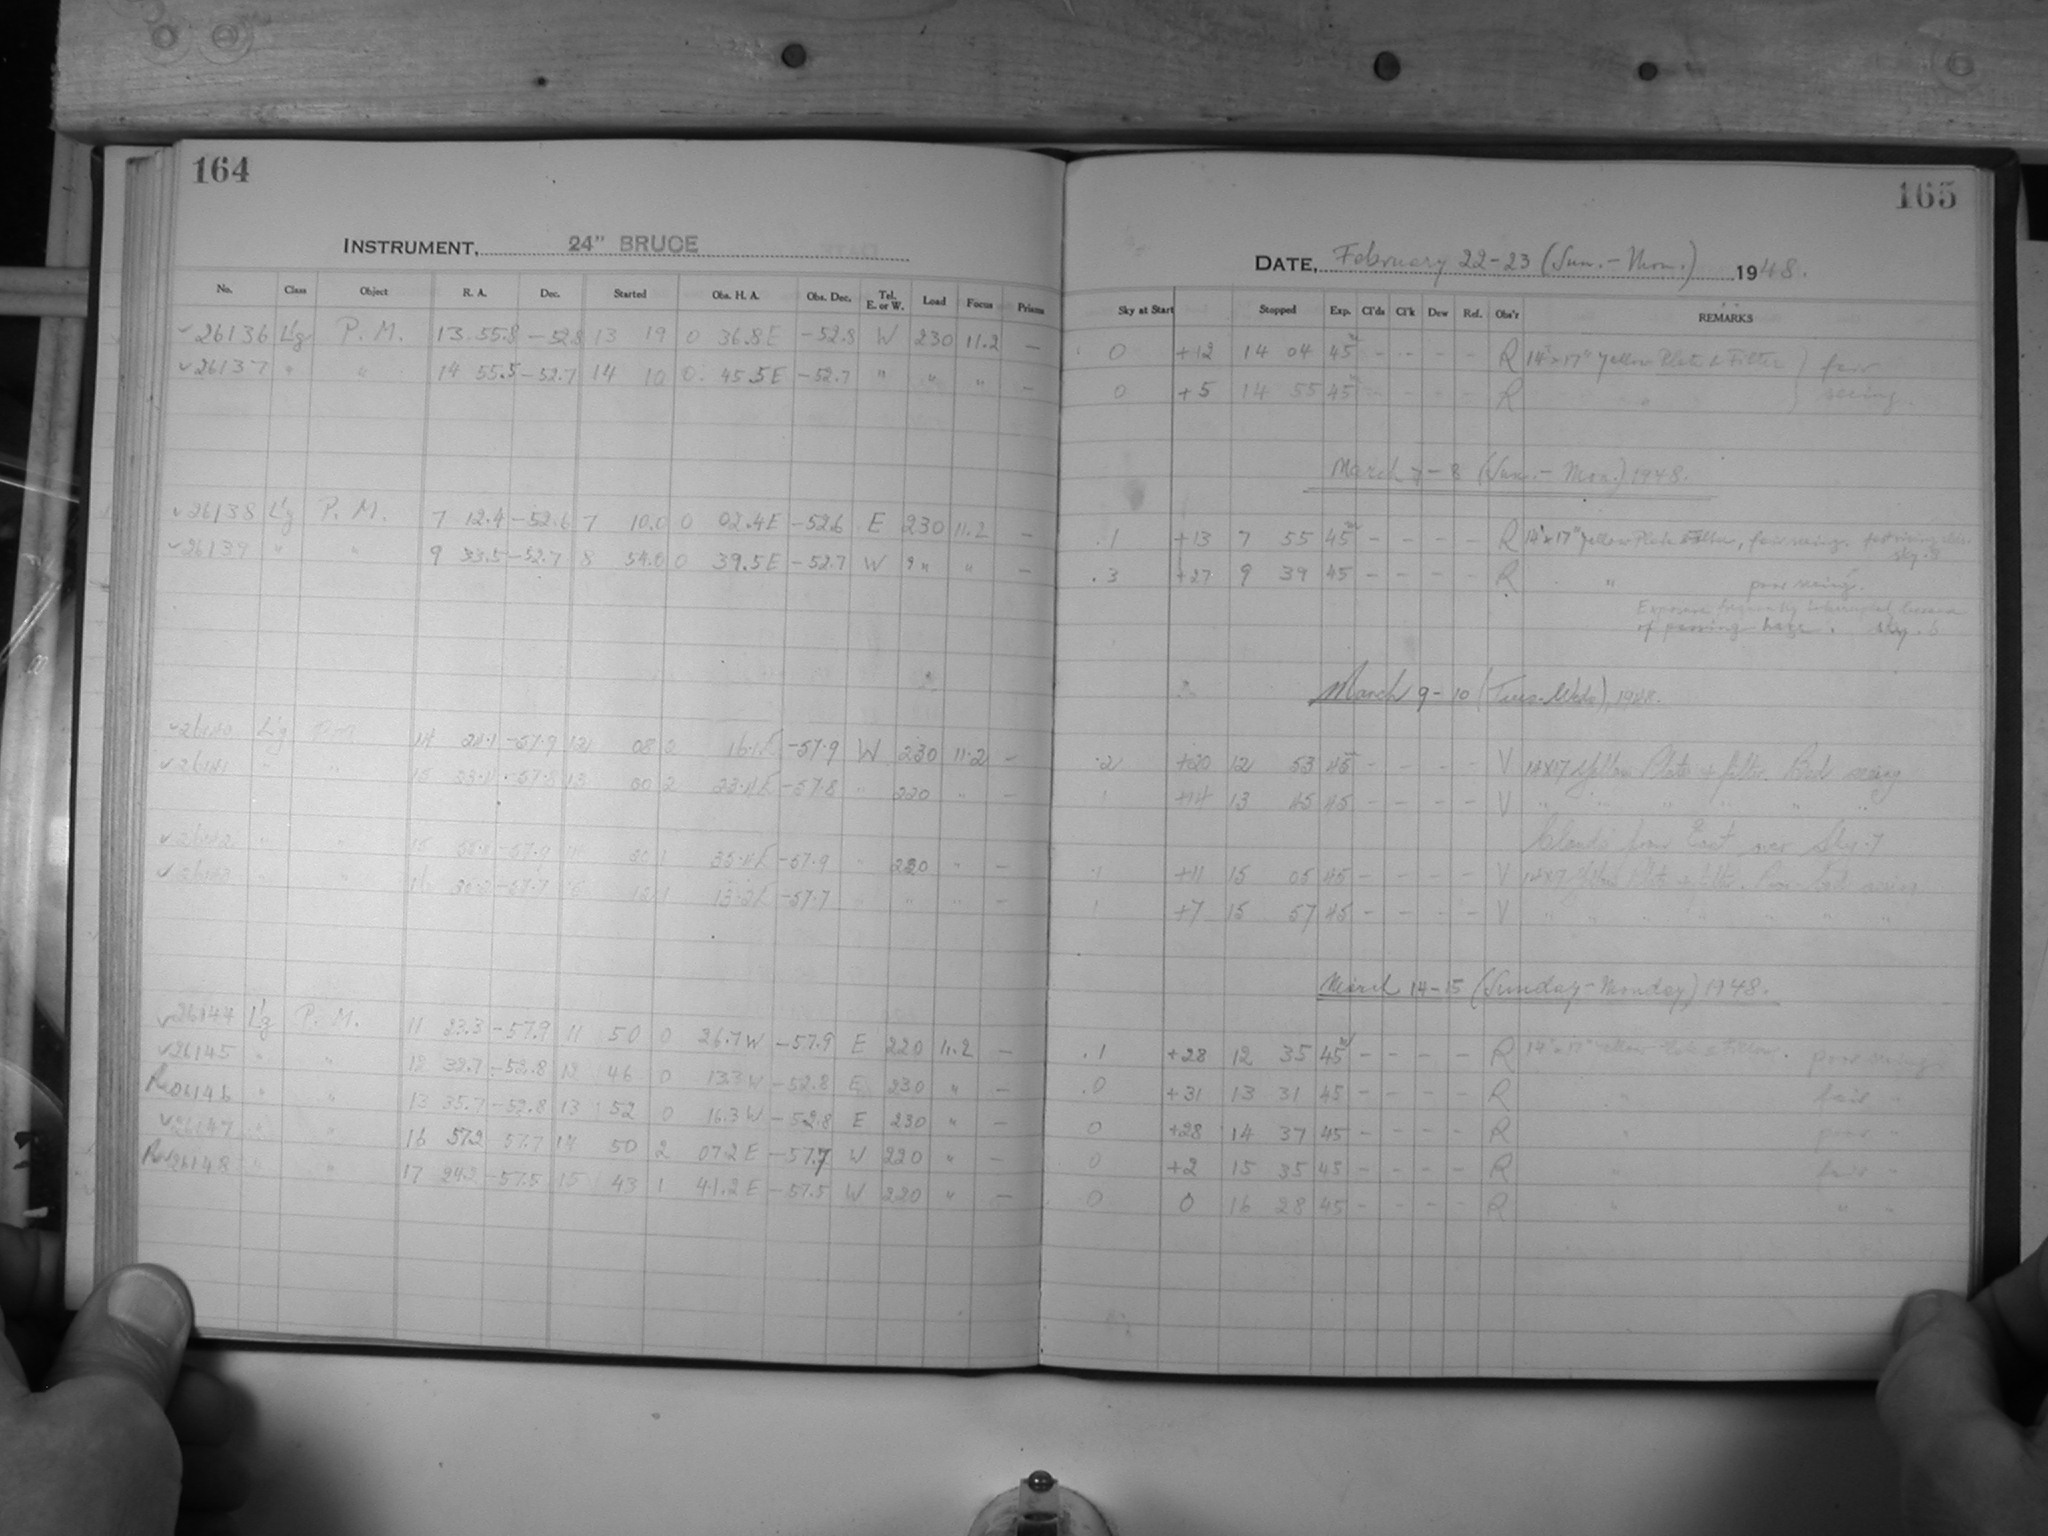 164
INSTRUMENT, 24" BRUCE
No. Class Object R. A. Dec. Started Obs. H. A. Obs. Dec. Tel. E. or W. Load Focus Prisms
✓26136 L'g P. M. 13 55.8 -52.8 13 19 0 36.8E -52.8 W 230 11.2 —
✓26137 " " 14 55.5 -52.7 14 10 0. 45.5E -52.7 " " " —
✓26138 L'g P. M. 7 12.4 -52.6 7 10.0 0 02.4E -52.6 E 230 11.2 —
✓26139 " " 9 33.5 -52.7 8 54.0 0 39.5E -52.7 W " " —
✓26140 L'g P.M. 14 -57.9 12 08 2 16.1E -57.9 W 230 11.2 —
✓26141 " " 15 -57.8 13 00 2 -57.8 " 220 " —
✓26142 " " 15 -57.9 1 -57.9 " 220 " —
" " 16 -57.7 1 -57.7 " " —
✓26144 L'g P. M. 11 23.3 -57.9 11 50 0 26.7W -57.9 E 220 11.2 —
✓26145 " " 12 32.7 -52.8 12 46 0 13.3W -52.8 E 230 " —
26146 " " 13 35.7 -52.8 13 52 0 16.3W -52.8 E 230 " —
✓26147 " " 16 57.2 -57.7 14 50 2 07.2E -57.7 W 220 " —
26148 " " 17 24.2 -57.5 15 43 1 41.2E -57.5 W 220 " —
165
DATE, February 22-23 (Sun.-Mon.) 1948.
Sky at Start Stopped Exp. Cl'ds Cl'k Dew Ref. Obs'r REMARKS
0 +12 14 04 45 - - - - R 14"x17" Yellow Plate & Filter } fair
0 +5 14 55 45 - - - - R " } seeing.
March 7-8 (Sun.-Mon.) 1948.
.1 +13 7 55 45 - - - - R 14"x17" Yellow Plate & Filter, fair seeing.
sky .3
.3 +27 9 39 45 - - - - R " poor seeing.
Exposure frequently interrupted because
of passing haze. sky .
March 9-10 (Tues.-Weds), 1948.
.2 +20 12 53 45 - - - - V 14x17 Yellow Plate + filter. Bad seeing
1 +14 13 45 45 - - - - V " " " " " "
Clouds from East over Sky .7
.1 +11 15 05 45 - - - - V 14x17 Yellow Plate + filter.
1 +7 15 57 45 - - - - V " " " " " " "
March 14-15 (Sunday-Monday) 1948.
.1 +28 12 35 45 - - - - R 14"x17" Yellow Plate & Filter. poor seeing
.0 +31 13 31 45 - - - - R " fair "
0 +28 14 37 45 - - - - R " poor "
0 +2 15 35 45 - - - - R " fair "
0 0 16 28 45 - - - - R " " "